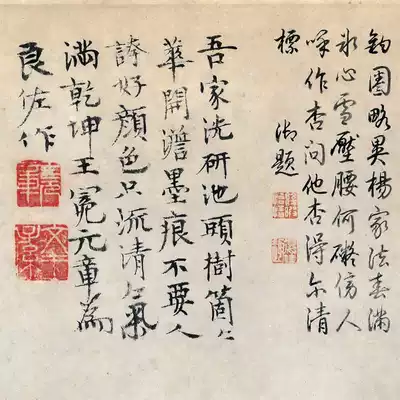 鈎圈略異楊家法春滿
氷心雪壓腰何礙傍人
呼作杏問他杏得尔清
標 御題
吾家洗研池頭樹箇〻
華開澹墨痕不要人
誇好顏色只流清氣
滿乾坤王冕元章為
良佐作